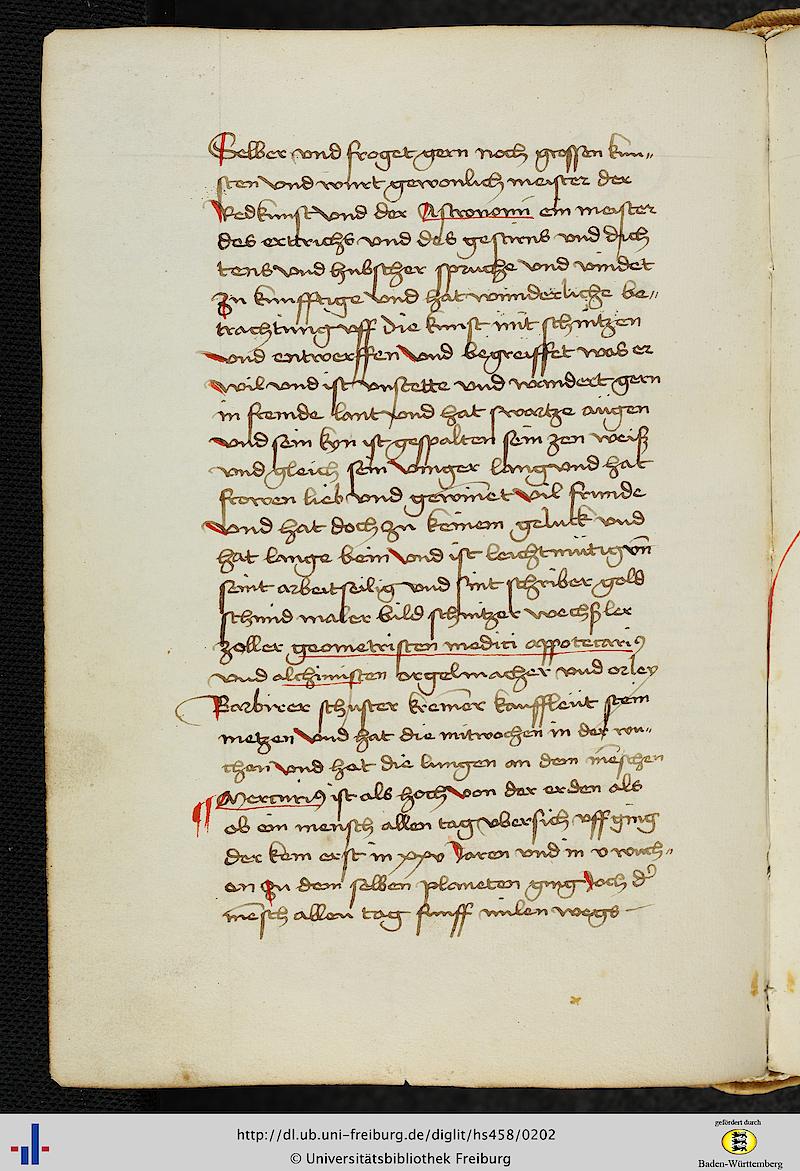 Selber vnd froget gern noch grossen kun„
sten vnd wurt gewonlich meister der
Redkunst vnd der Astronomi ein meister
des erttrichs vnd des gestirns vnd dich
tens vnd hubscher spruche vnd vindet
zu kunfftige vnd hat wunderliche be„
trachtung vff die kunst mit schnitzen
vnd entwerffen vnd begreiffet was er
wil vnd ist vnstette vnd wandert gern
in fremde lant vnd hat swartze augen
vnd sein kyn ist gespalten sein zen weiß
vnd gleich sein vinger lang vnd hat
frowen lieb vnd gewīnet vil frunde
vnd hat doch zu keinem geluck vnd
hat lange bein vnd ist leichtmütig vn̄
seint arbeitseilig vnd sint schriber gold
schmid maler bild schnitzer wechßler
zoller geometristen medici appotecariꝰ
vnd alchimisten orgelmacher vnd orley
Barbirer schuster kremer kauffleüt stein
metzen vnd hat die mitwochen in der wu„
chen vnd hat die lungen an dem mēschen
¶ Mercuriꝰ ist als hoch von der erden als
ob ein mensch allen tag vbersich vff ging
der kem erst in xxv Jaren vnd in v wuch„
en zu dem selben planeten ging Joch d'
mēsch allen tag funff milen wegs
http://dl.ub.uni-freiburg.de/diglit/hs458/0202
© Universitätsbibliothek Freiburg
gefördert durch
Baden-Württemberg